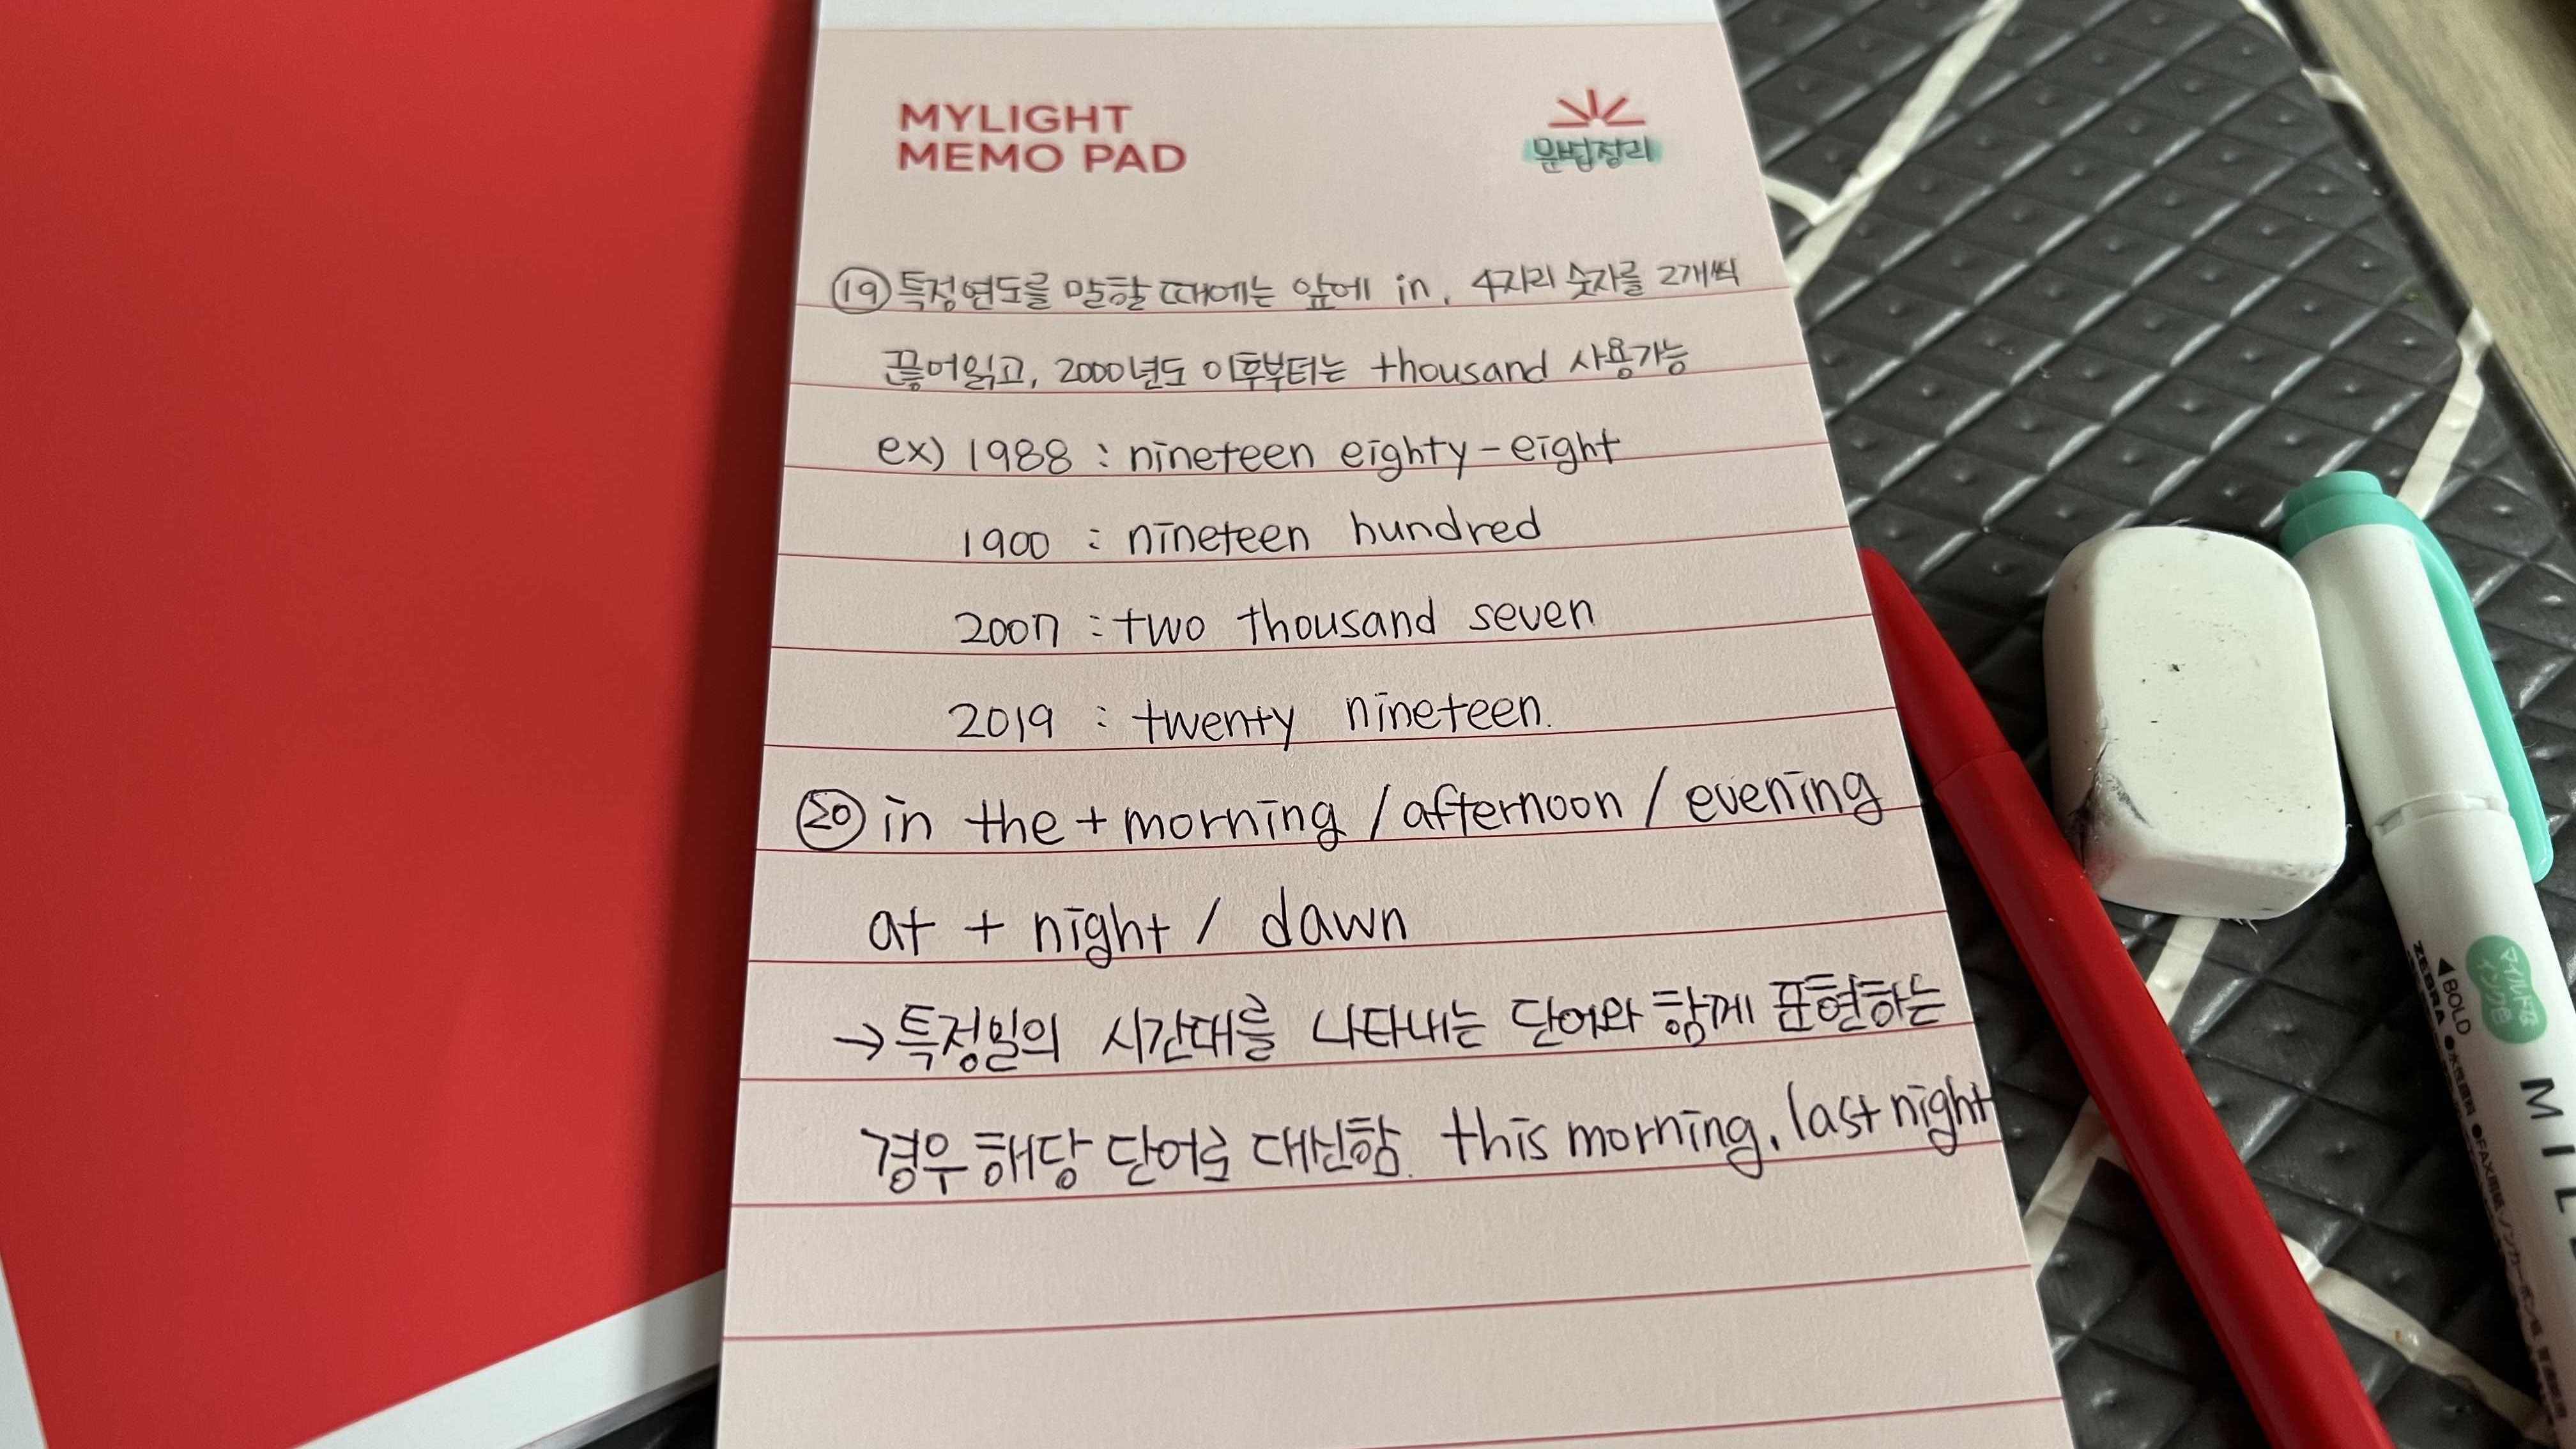 MYLIGHT
MEMO PAD
문법정리
⑲ 특정연도를 말할 때에는 앞에 in, 4자리 숫자를 2개씩
끊어읽고, 2000년도 이후부터는 thousand 사용가능
ex) 1988 : nineteen eighty-eight
1900 : nineteen hundred
2007 : two thousand seven
2019 : twenty nineteen.
⑳ in the + morning / afternoon / evening
at + night / dawn
→ 특정일의 시간대를 나타내는 단어와 함께 표현하는
경우 해당 단어로 대신함. this morning, last night
マイルドな
インク色
◀BOLD
ZEBRA
MIL